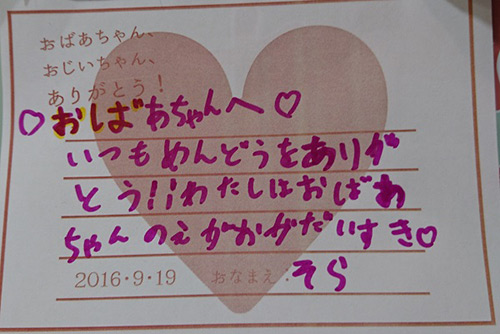 おばあちゃん、
おじいちゃん、
ありがとう!
♡おしばあちゃんへ♡
いつもめんどうをありが
とう!!わたしはおばあ
ちゃんのえがおがだいすき♡
2016・9・19 おなまえ：そら